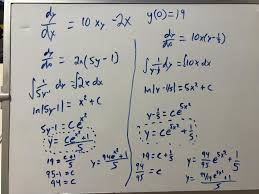 dy/dx = 10xy - 2x   y(0) = 19
dy/dx = 2x(5y-1)
∫ 1/(5y-1) dy = ∫2x dx
ln|5y-1| = x² + C
5y-1 = Ce^(x²)
y = (Ce^(x²)+1)/5
19 = (C+1)/5
95-1 = C
94 = C
y = (94e^(x²)+1)/5
dy/dx = 10x(y-1/5)
∫ 1/(y-1/5) dy = ∫10x dx
ln|y-1/5| = 5x² + C
y-1/5 = Ce^(5x²)
y = Ce^(5x²) + 1/5
19 = C + 1/5
94/95 = C
y = 94/95 e^(5x²) + 1/5